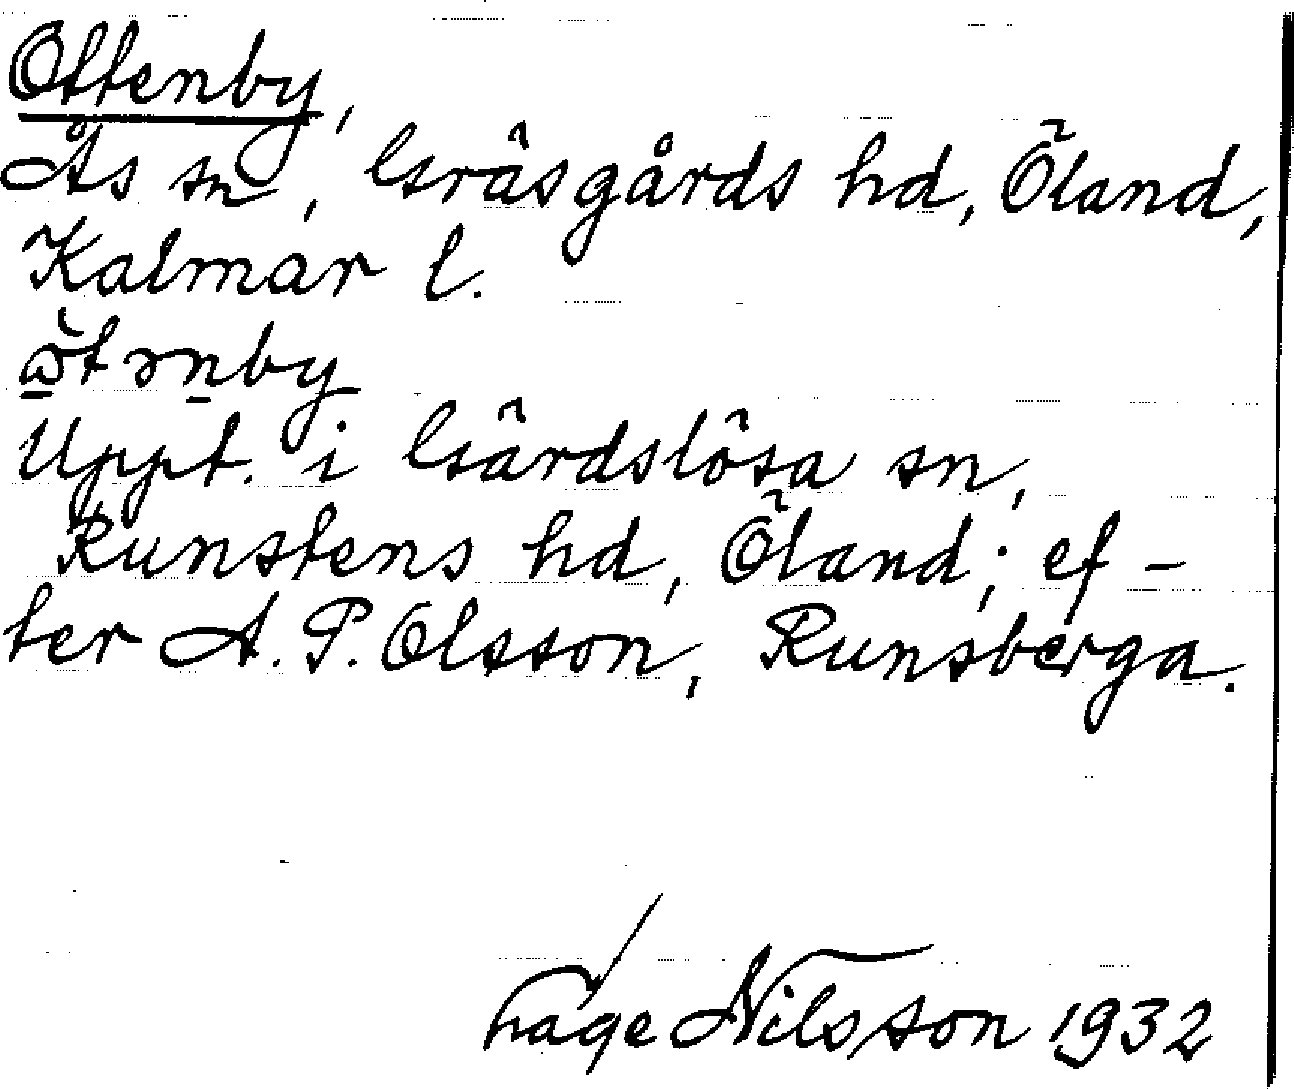 Ottenby,
Ås sn, Gräsgårds hd, Öland,
Kalmar l.
Uppt. i Gärdslösa sn,
Runstens hd, Öland; ef-
ter A. P. Olsson, Runsberga.
Hage Nilsson 1932